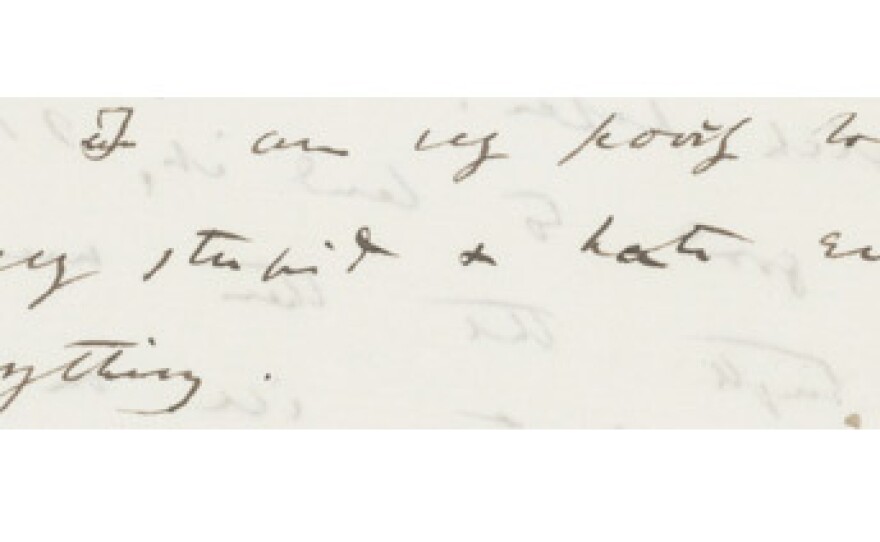 I am very poorly to
ery stupid & hate ev
ything.